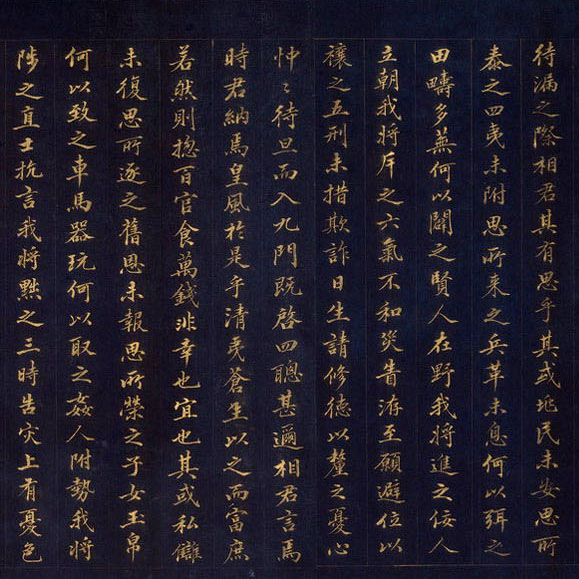 待漏之際相君其有思乎其或兆民未安思所
泰之四夷未附思所來之兵革未息何以弭之
田疇多蕪何以闢之賢人在野我將進之佞人
立朝我將斥之六氣不和災眚洊至願避位以
禳之五刑未措欺詐日生請修德以釐之憂心
忡〻待旦而入九門既啓四聰甚邇相君言焉
時君納焉皇風於是乎清夷蒼生以之而富庶
若然則揔百官食萬錢非幸也宜也其或私讎
未復思所逐之舊恩未報思所榮之子女玉帛
何以致之車馬器玩何以取之姦人附勢我將
陟之直士抗言我將黜之三時告灾上有憂色